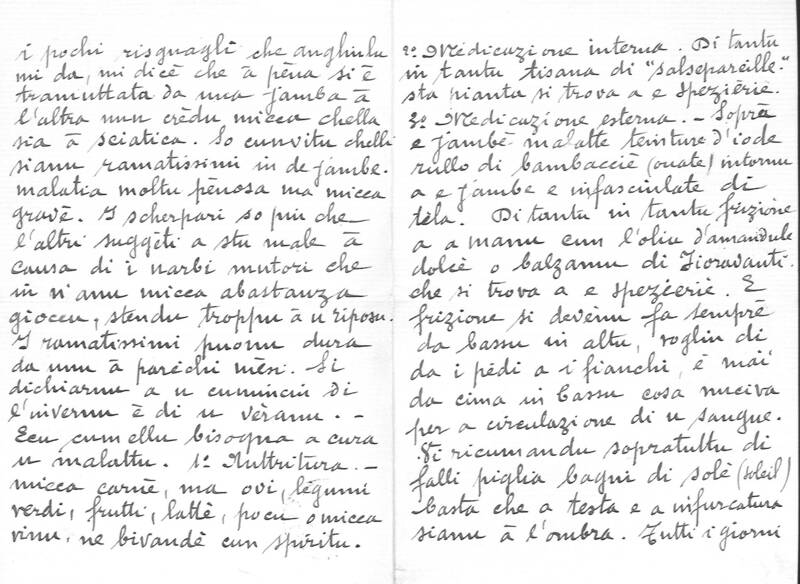 i pochi risguaglî che anghiulu
mi da, mi dicè che à pèna si è
tramuttata da una jamba à
l'altra nun crèdu micca chella
sia à sciatica. So cunvitu chelli
sianu ramatissimi in de jambe.
malatia moltu pènosa ma micca
gravè. I scherpari so piu che
l'altri suggèti a stu male à
causa di i narbi mutori che
in n'anu micca abastanza
gioccu, stendu troppu à u riposu.
I ramatissimi puonu dura
da unu à parèchi mèsi. Si
dichiarnu a u cuminciu di
l'nivernu è di u vèranu. -
Ecu cum ellu bisogna a cura
u malattu. 1º Nuttritura. -
micca carnè, ma ovi, légumi
verdi, frutti, lattè, pocu o micca
vinu, ne bivandè cun spiritu.
2º Médicazione interna. Di tantu
in tantu tisana di "salsepareille"
sta pianta si trova a e spezièrie.
3º Médicazione esterna. - Soprà
e jambè malatte teinture d'iode
rullo di bambacciè (ouate) intornu
a e jambe e infasciulate di
tèla. Di tantu in tantu frizione
a a manu cun l'oliu d'amandule
dolcè o balzamu di Fioravanti.
che si trova a e spezièrie. E
frizione si devenu fa semprè
da bassu in altu, vogliu di
da i pèdi a i fianchi, è mai
da cima in bassu cosa nuciva
per a circulazione di u sangue.
Vi ricumandu sopratuttu di
falli piglia bagni di solè (soleil)
basta che a testa e a infurcatura
sianu à l'ombra. Tutti i giorni